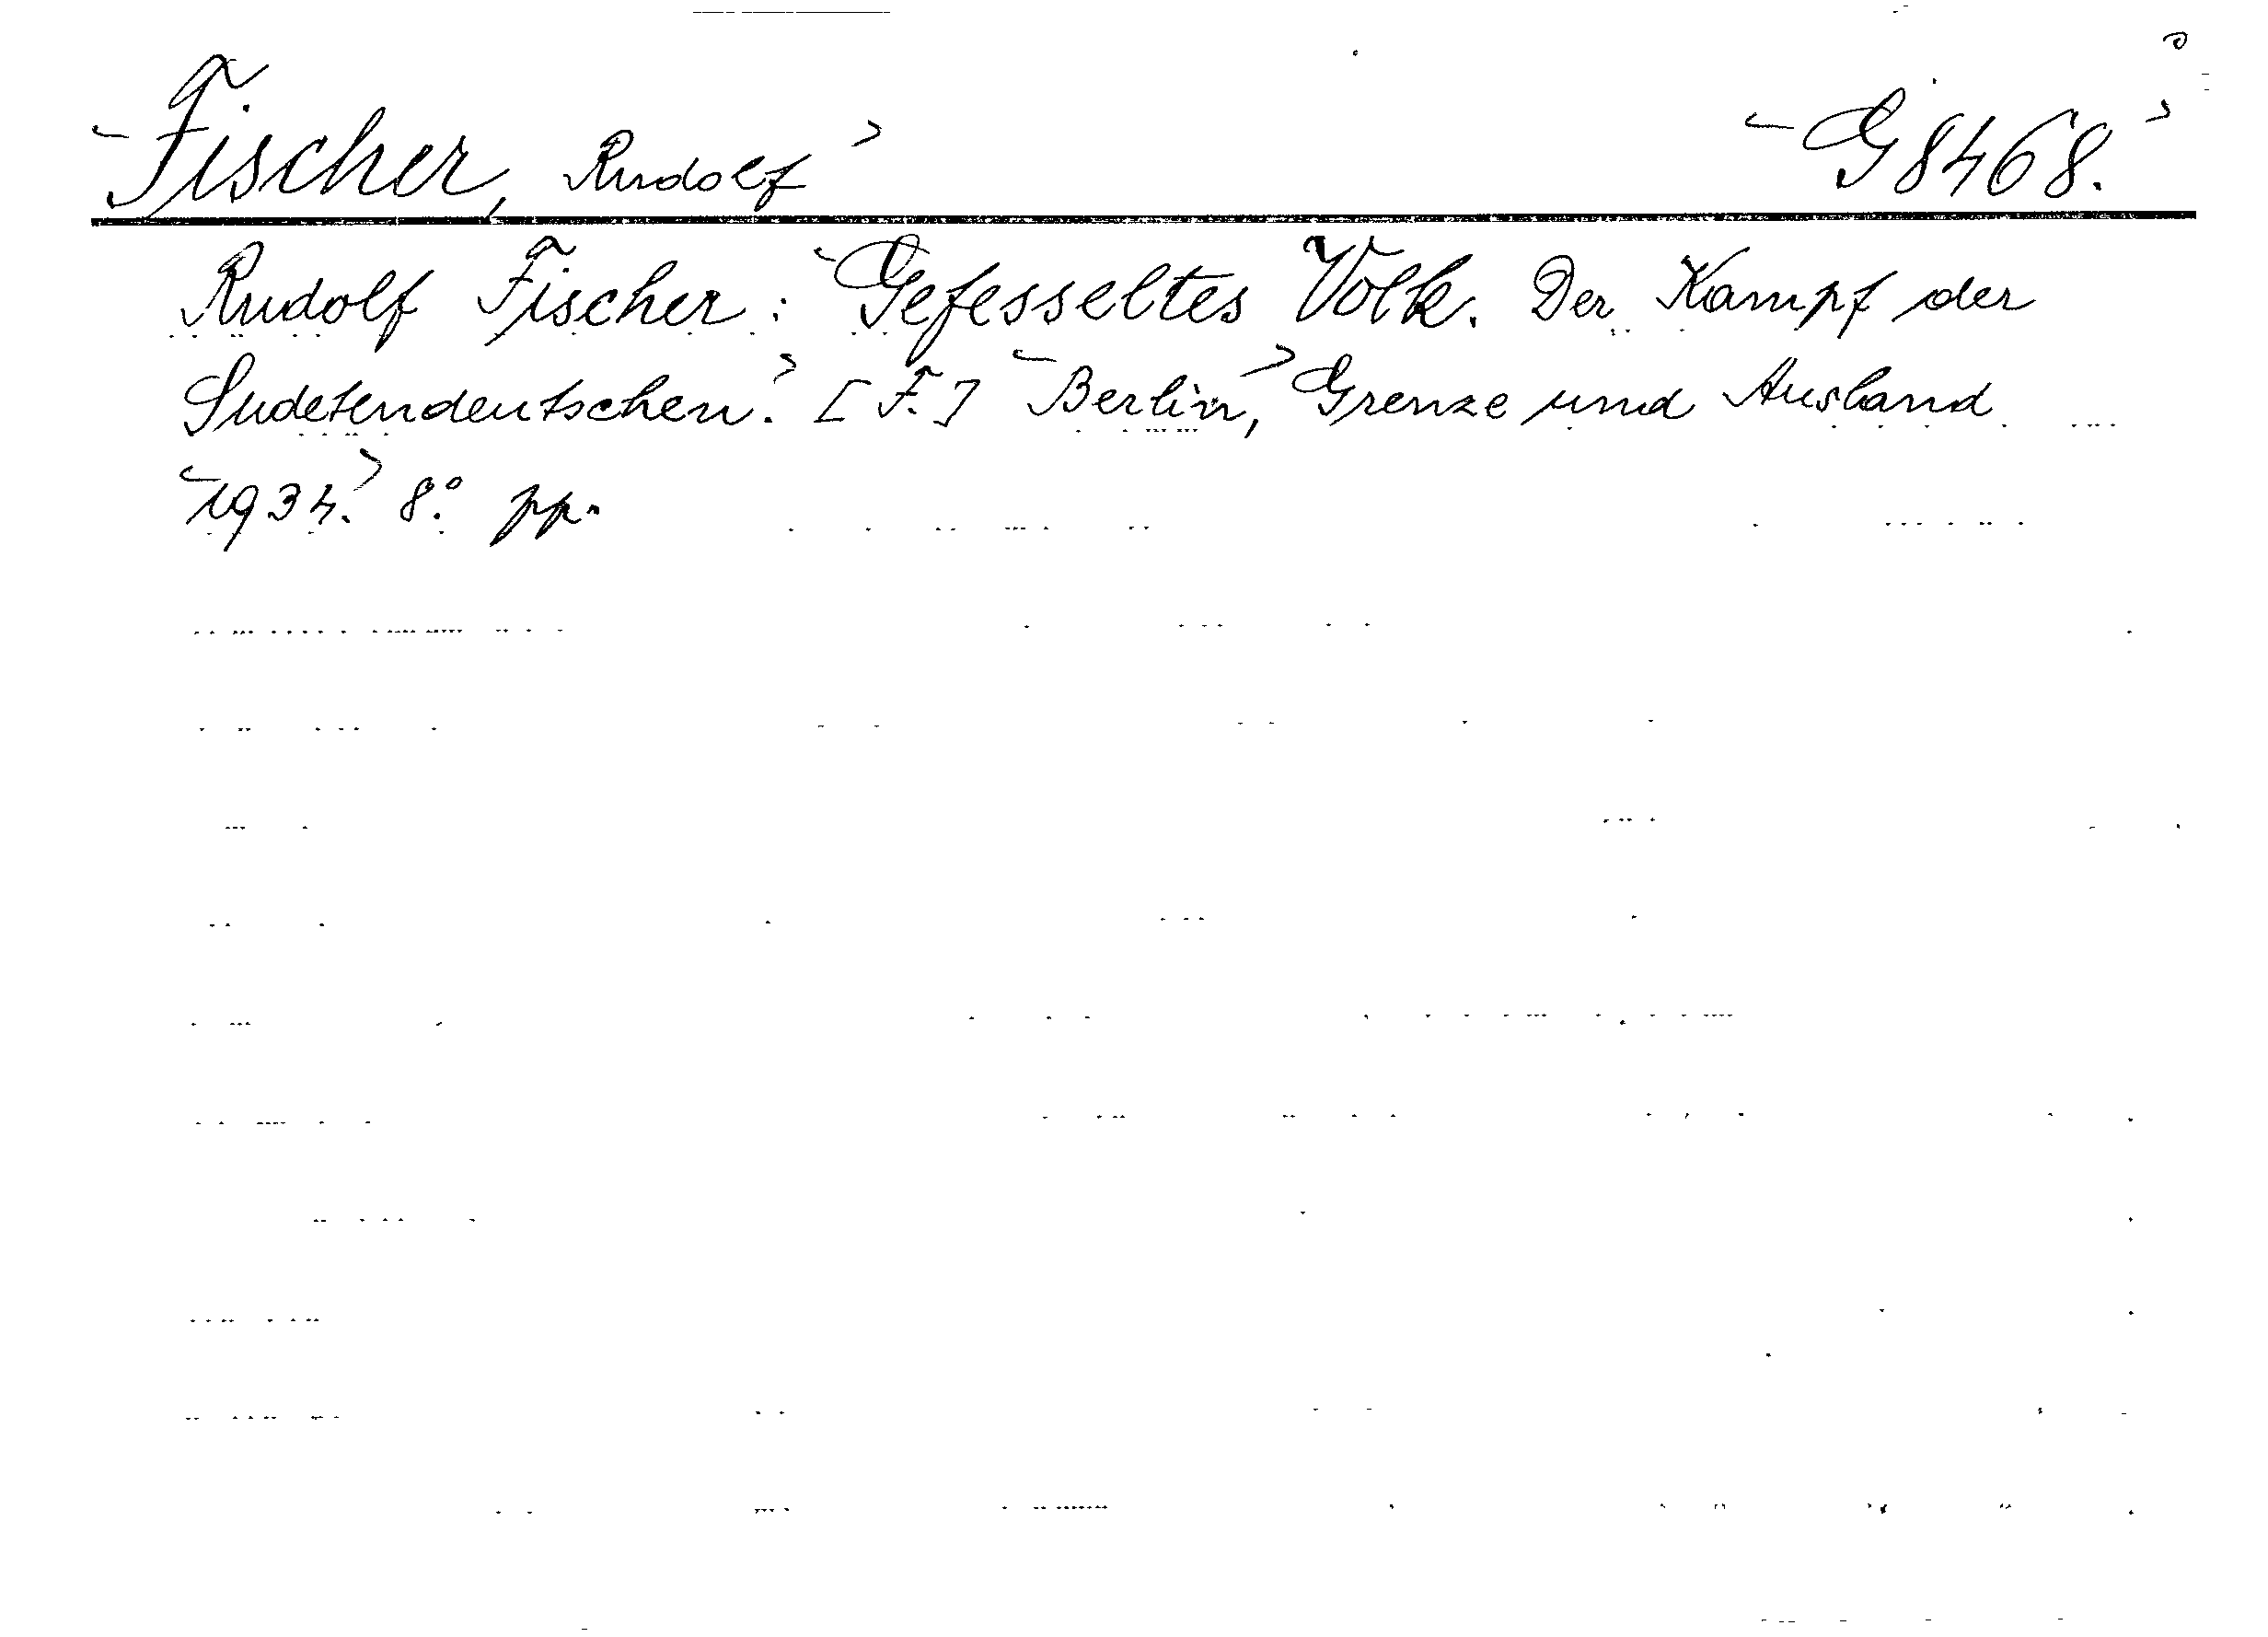 Fischer, Rudolf G 8468.
Rudolf Fischer: Gefesseltes Volk. Der Kampf der
Sudetendeutschen. [F.] Berlin, Grenze und Ausland
1934. 8.° pp.